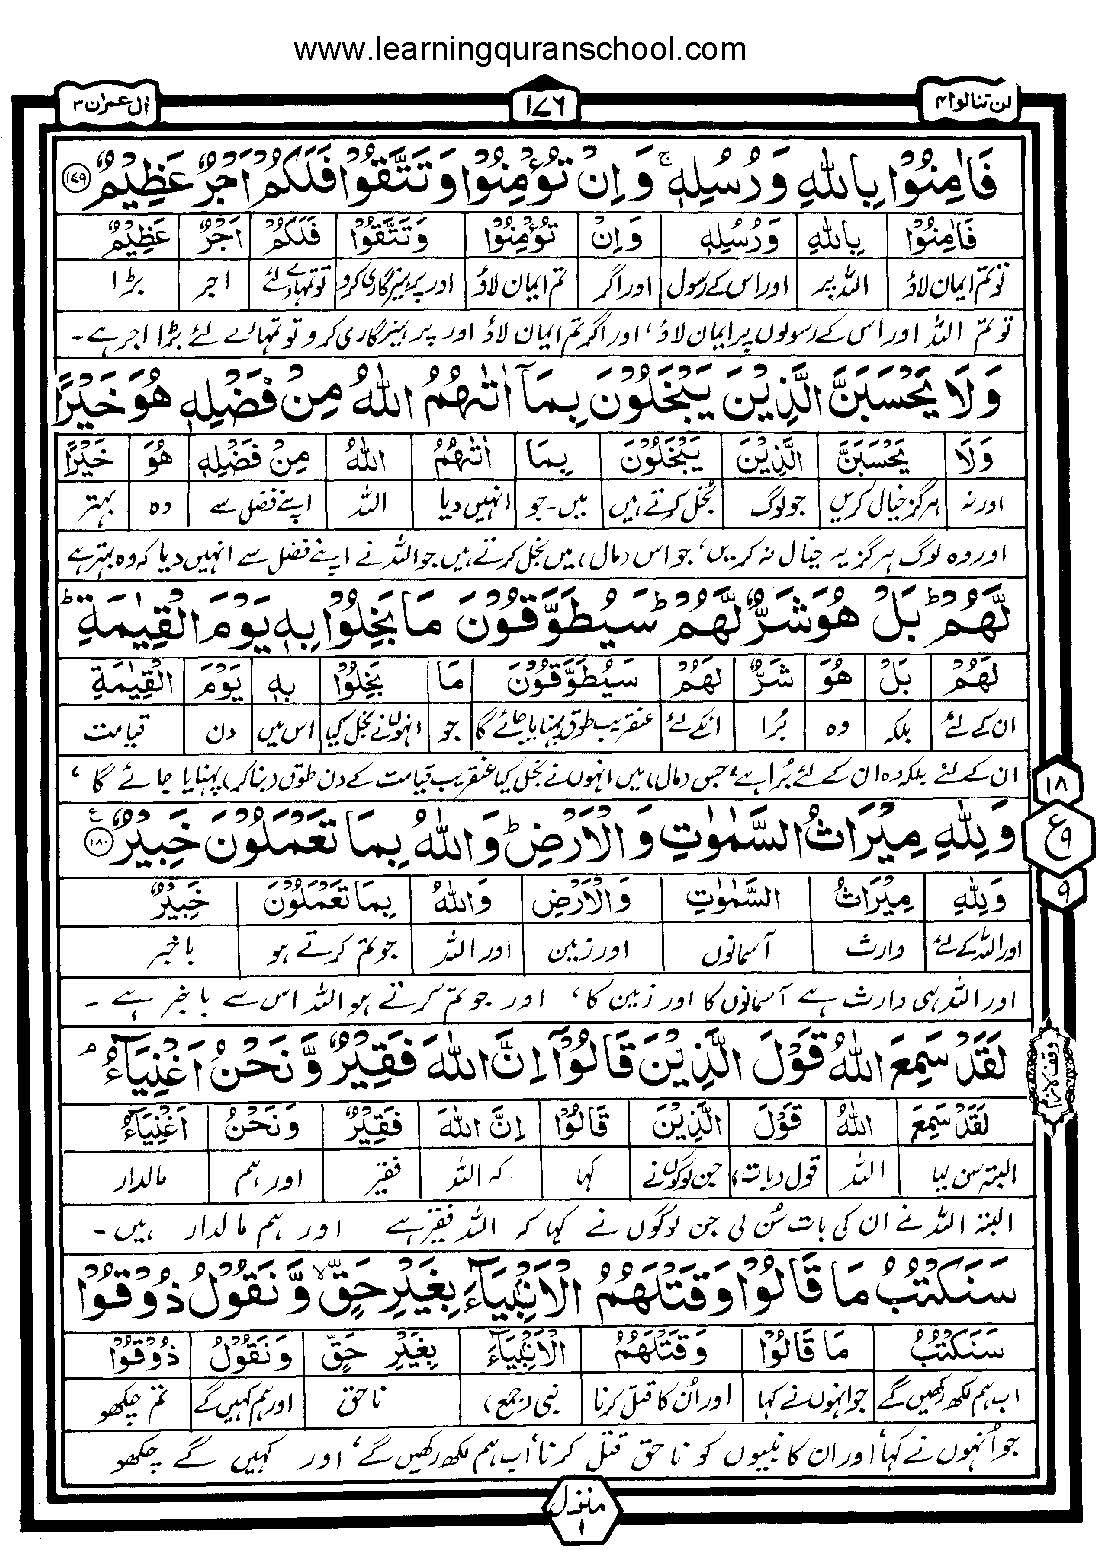 www.learningquranschool.com
لن تنالوا ۴
۱۷۶
اٰل عمران ۳
فَاٰمِنُوْا بِاللّٰهِ وَرُسُلِهٖ ۚ وَاِنْ تُؤْمِنُوْا وَتَتَّقُوْا فَلَكُمْ اَجْرٌ عَظِيْمٌ ۝۱۷۹
فَاٰمِنُوْا بِاللّٰهِ وَرُسُلِهٖ وَاِنْ تُؤْمِنُوْا وَتَتَّقُوْا فَلَكُمْ اَجْرٌ عَظِيْمٌ
تو تم ایمان لاؤ اللہ پر اور اس کے رسول اور اگر تم ایمان لاؤ اور پرہیزگاری کرو تو تمہارے لئے اجر بڑا
تو تم اللہ اور اس کے رسولوں پر ایمان لاؤ، اور اگر تم ایمان لاؤ اور پرہیزگاری کرو تو تمہارے لئے بڑا اجر ہے۔
وَلَا يَحْسَبَنَّ الَّذِيْنَ يَبْخَلُوْنَ بِمَآ اٰتٰىهُمُ اللّٰهُ مِنْ فَضْلِهٖ هُوَ خَيْرًا
وَلَا يَحْسَبَنَّ الَّذِيْنَ يَبْخَلُوْنَ بِمَا اٰتٰىهُمُ اللّٰهُ مِنْ فَضْلِهٖ هُوَ خَيْرًا
اور نہ ہرگز خیال کریں جو لوگ بخل کرتے ہیں میں۔جو انہیں دیا اللہ اپنے فضل سے وہ بہتر
اور وہ لوگ ہرگز یہ خیال نہ کریں، جو اس (مال) میں بخل کرتے ہیں جو اللہ نے اپنے فضل سے انہیں دیا کہ وہ بہتر ہے
لَّهُمْ ؕ بَلْ هُوَ شَرٌّ لَّهُمْ ؕ سَيُطَوَّقُوْنَ مَا بَخِلُوْا بِهٖ يَوْمَ الْقِيٰمَةِ ؕ
لَهُمْ بَلْ هُوَ شَرٌّ لَهُمْ سَيُطَوَّقُوْنَ مَا بَخِلُوْا بِهٖ يَوْمَ الْقِيٰمَةِ
ان کے لئے بلکہ وہ بُرا انکے لئے عنقریب طوق پہنایا جائے گا جو انہوں نے بخل کیا اس میں دن قیامت
ان کے لئے بلکہ وہ ان کے لئے بُرا ہے، جس (مال) میں انہوں نے بخل کیا عنقریب قیامت کے دن طوق (بنا کر) پہنایا جائے گا،
وَلِلّٰهِ مِيْرَاثُ السَّمٰوٰتِ وَالْاَرْضِ ؕ وَاللّٰهُ بِمَا تَعْمَلُوْنَ خَبِيْرٌ ۝۱۸۰ ع
۱۸
ع ۹
۹
وَلِلّٰهِ مِيْرَاثُ السَّمٰوٰتِ وَالْاَرْضِ وَاللّٰهُ بِمَا تَعْمَلُوْنَ خَبِيْرٌ
اور اللہ کے لئے وارث آسمانوں اور زمین اور اللہ جو تم کرتے ہو باخبر
اور اللہ ہی وارث ہے آسمانوں کا اور زمین کا، اور جو تم کرتے ہو اللہ اس سے باخبر ہے۔
لَقَدْ سَمِعَ اللّٰهُ قَوْلَ الَّذِيْنَ قَالُوْٓا اِنَّ اللّٰهَ فَقِيْرٌ وَّنَحْنُ اَغْنِيَآءُ ۘ
وقف لازم
لَقَدْ سَمِعَ اللّٰهُ قَوْلَ الَّذِيْنَ قَالُوْٓا اِنَّ اللّٰهَ فَقِيْرٌ وَنَحْنُ اَغْنِيَآءُ
البتہ سن لیا اللہ قول (بات) جن لوگوں نے کہا کہ اللہ فقیر اور ہم مالدار
البتہ اللہ نے ان کی بات سُن لی جن لوگوں نے کہا کہ اللہ فقیر ہے اور ہم مالدار ہیں۔
سَنَكْتُبُ مَا قَالُوْا وَقَتْلَهُمُ الْاَنْۢبِيَآءَ بِغَيْرِ حَقٍّ ۙ وَّنَقُوْلُ ذُوْقُوْا
سَنَكْتُبُ مَا قَالُوْا وَقَتْلَهُمُ الْاَنْۢبِيَآءَ بِغَيْرِ حَقٍّ وَنَقُوْلُ ذُوْقُوْا
اب ہم لکھ رکھیں گے جو انہوں نے کہا اور اُن کا قتل کرنا نبی (جمع) ناحق اور ہم کہیں گے تم چکھو
جو اُنہوں نے کہا، اور ان کا نبیوں کو ناحق قتل کرنا، اب ہم لکھ رکھیں گے، اور کہیں گے چکھو
منزل ۱